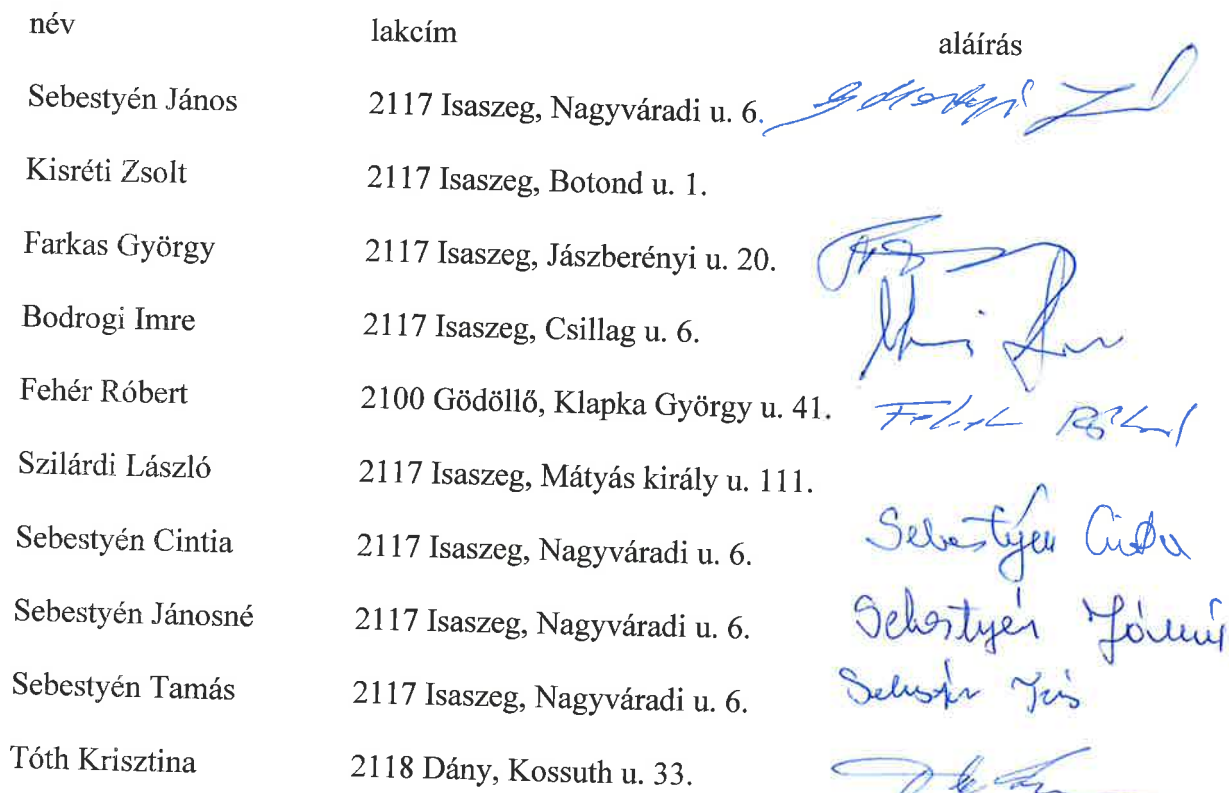 név lakcím aláírás
Sebestyén János 2117 Isaszeg, Nagyváradi u. 6.
Kisréti Zsolt 2117 Isaszeg, Botond u. 1.
Farkas György 2117 Isaszeg, Jászberényi u. 20.
Bodrogi Imre 2117 Isaszeg, Csillag u. 6.
Fehér Róbert 2100 Gödöllő, Klapka György u. 41.
Szilárdi László 2117 Isaszeg, Mátyás király u. 111.
Sebestyén Cintia 2117 Isaszeg, Nagyváradi u. 6. Sebestyén Cintia
Sebestyén Jánosné 2117 Isaszeg, Nagyváradi u. 6. Sebestyén Jánosné
Sebestyén Tamás 2117 Isaszeg, Nagyváradi u. 6.
Tóth Krisztina 2118 Dány, Kossuth u. 33.